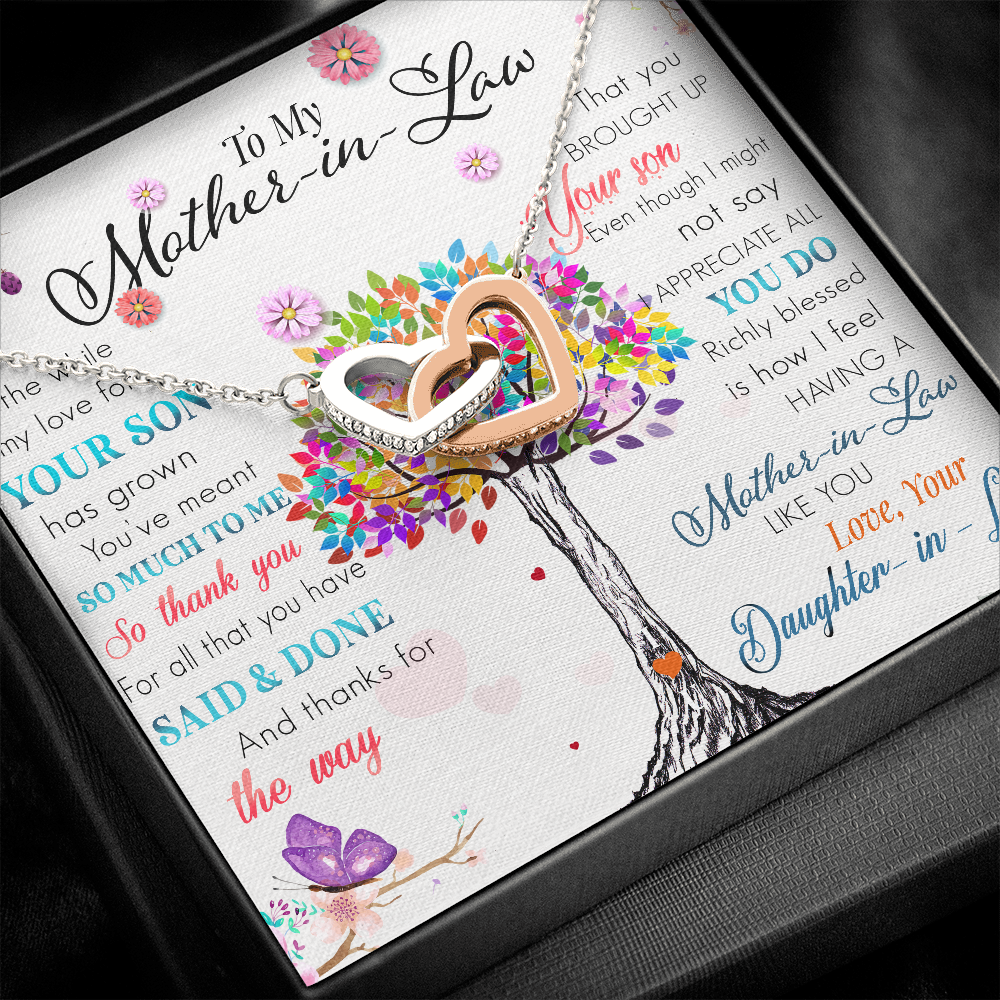 To My
Mother-in-Law
the while
my love for
YOUR SON
has grown
You've meant
SO MUCH TO ME
So thank you
For all that you have
SAID & DONE
And thanks for
the way
That you
BROUGHT UP
Your son
Even though I might
not say
I APPRECIATE ALL
YOU DO
Richly blessed
is how I feel
HAVING A
Mother-in-Law
LIKE YOU
Love, Your
Daughter-in-